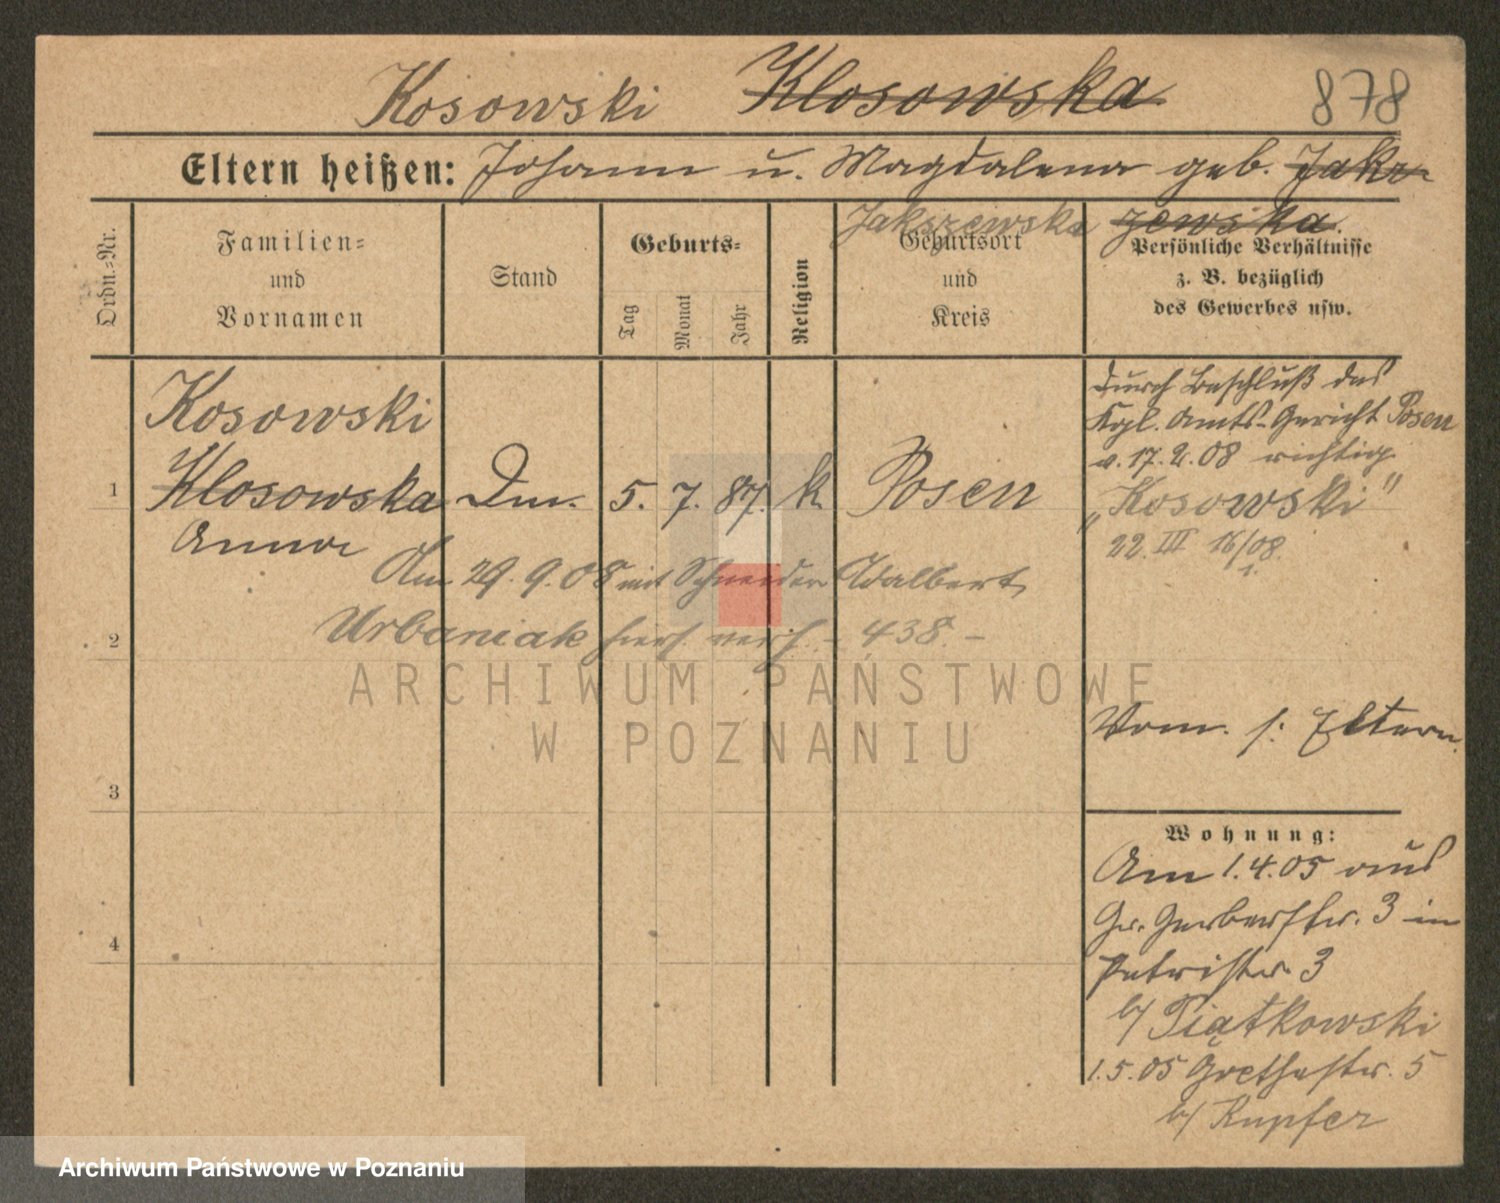 Kosowski Klosowska 878
Eltern heißen: Johann u. Magdalena geb. Jaks-
Jakszewska zewska.
Ordn.=Nr.
Familien=
und
Vornamen
Stand
Geburts=
Tag
Monat
Jahr
Religion
Geburtsort
und
Kreis
Persönliche Verhältnisse
z. B. bezüglich
des Gewerbes usw.
1
Kosowski
Klosowska
Anna
5. 7. 87. k. Posen
durch Beschluß des
Kgl. Amts-Gericht Posen
v. 17.2.08 richtig
„Kosowski"
22. III 16/08
Am 29.9.08 mit Schneider Adalbert
Urbaniak hiers. verh. - 438. -
2
3
4
Vorm. s: Eltern.
Wohnung:
Am 1.4.05 aus
Gr. Gerberstr. 3 in
Petristr. 3
b/ Piątkowski
1.5.05 Goethestr. 5
b/ Kupfer
ARCHIWUM PAŃSTWOWE
W POZNANIU
Archiwum Państwowe w Poznaniu